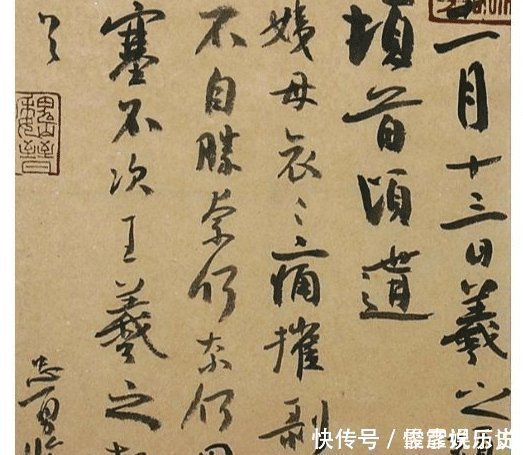 一月十三日羲之
頓首頃遘
姨母哀〻痛摧剝
不自勝奈何奈何
塞不次王羲之
快传号/